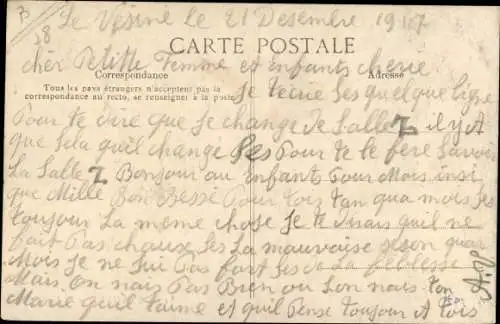 Le Vésiné le 21 Desembre 1917
CARTE POSTALE
cher Petitte Femme et enfants cherie
Correspondance
Adresse
Tous les pays étrangers n'acceptent pas la
correspondance au recto, se renseigner à la poste
Je tecrie ses quelque ligne
Pour te dire que Je change de Salle Z il y A
que sela quil change Ses Pour te le fere savoir
La Salle Z Bonjour au Enfants Pour Mois insi
que Mille Bon Bessé Pour tois tan qua mois ses
toujour La meme chose Je te dirais quil ne
fait Pas chaux ses La mauvaise seson quar
Mois Je ne sui Pas fort ses de La feblesse
Mais On nais Pas Bien ou Lon nais ton
Marie quil taime et quil Pense toujour A tois